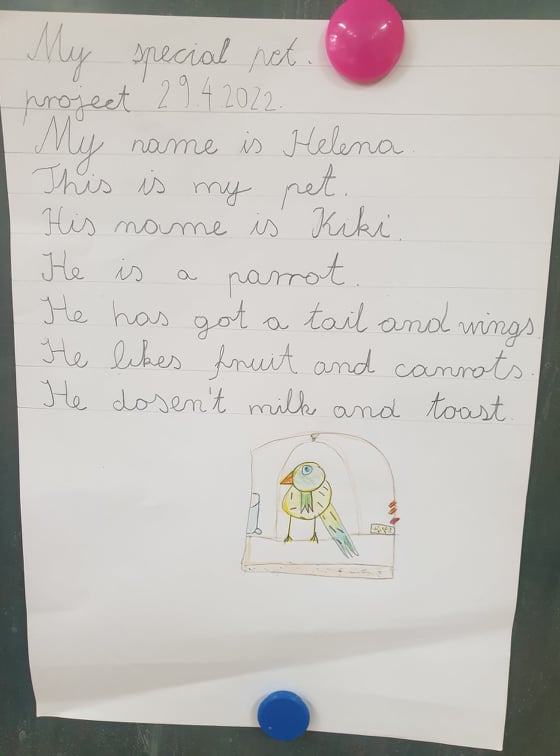 My special pet.
project 29.4.2022.
My name is Helena.
This is my pet.
His name is Kiki.
He is a parrot.
He has got a tail and wings.
He likes fruit and carrots.
He dosen't milk and toast.